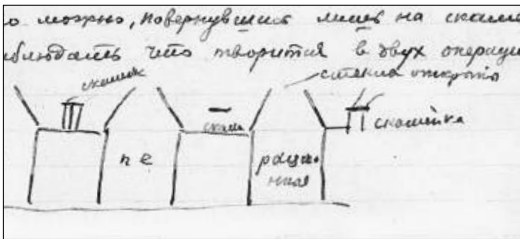 о можно, повернувшись лишь на скаме
аблюдать что творится в двух операци
скамейк
стекла открыто
скам
скамейка
пе рацио
нная